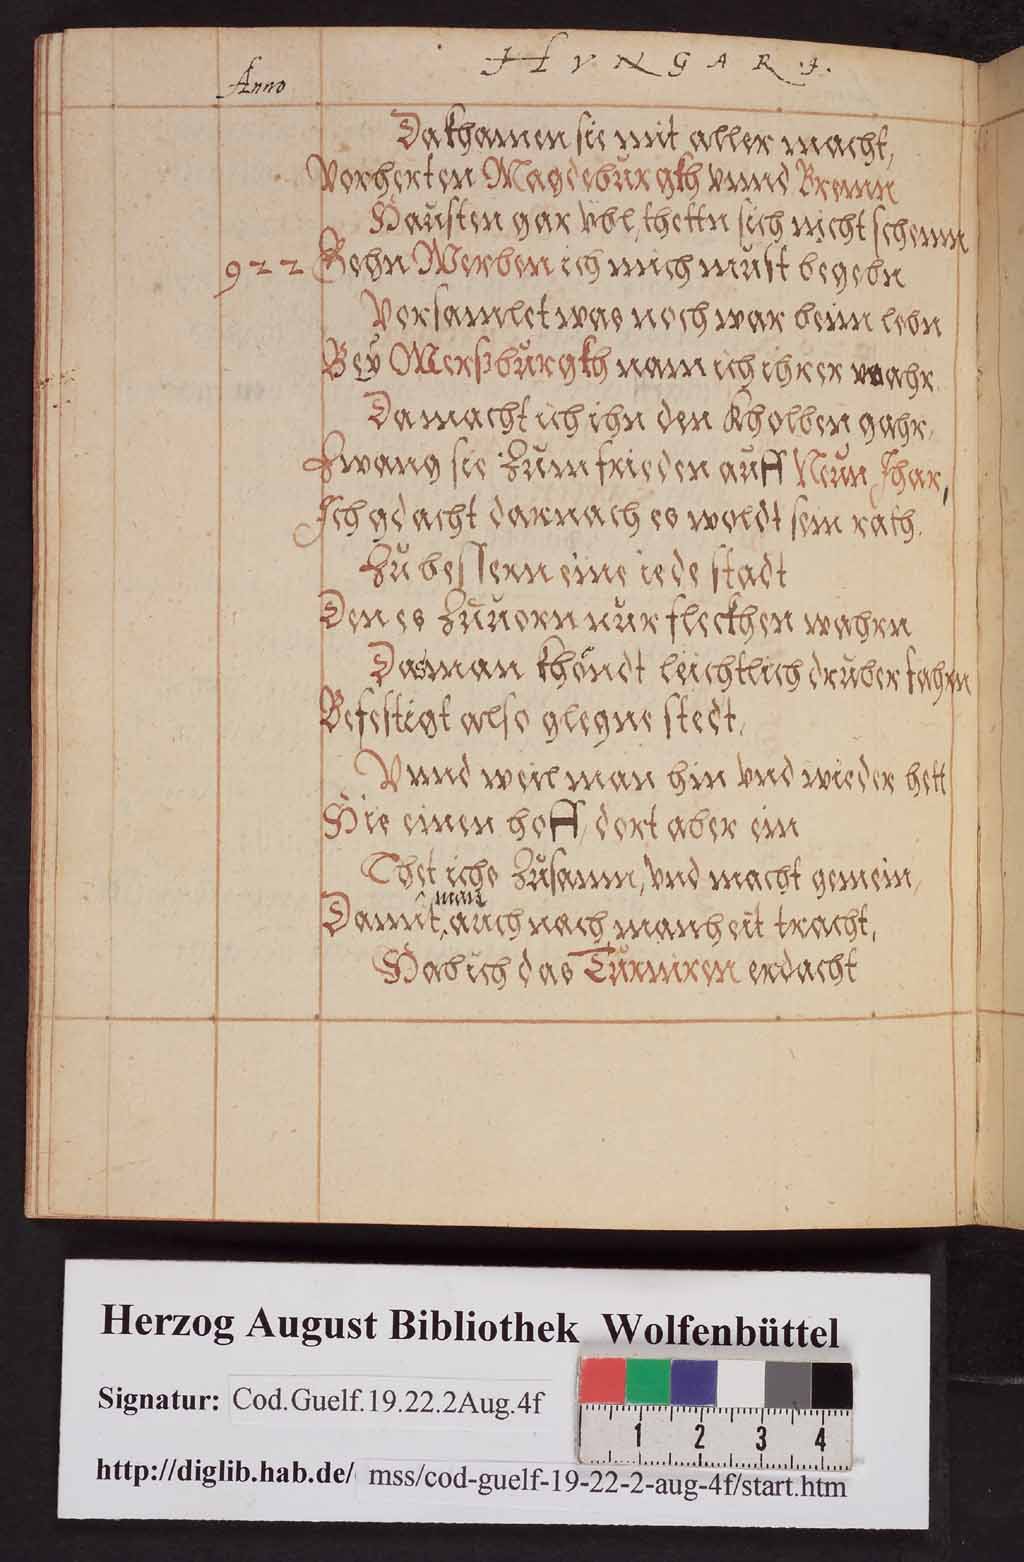 HVNGARI.
Anno
Da khamen sie mit aller macht,
Vorherten Magdeburgkh vnnd Bremn
Hausten gar vbl, thettn sich nicht schemn
922 Gehn Werben ich mich must begebn
Versamlet was noch war beim lebn
Bey Merßburgkh nam ich ihrer wahr.
Da macht ich ihn den Kholben gahr,
Zwang sie Zum frieden auff Neun Jhar,
Ich gdacht darnach es woldt sein rath.
Zu bessern eine iede stadt
Den es Zuuorn nur fleckhen wahrn
Das man khöndt leichtlich druber fahrn
Befestigt also glegne stedt,
Vnnd weil man hin vnd wieder hett
Hie einen hoff, dort aber ein
Thet ichs Zusamn, vnd macht gemein,
man
Damit, auch nach manheit tracht,
Hab ich das Turniren erdacht
Herzog August Bibliothek Wolfenbüttel
Signatur: Cod.Guelf.19.22.2Aug.4f
1 2 3 4
http://diglib.hab.de/ mss/cod-guelf-19-22-2-aug-4f/start.htm